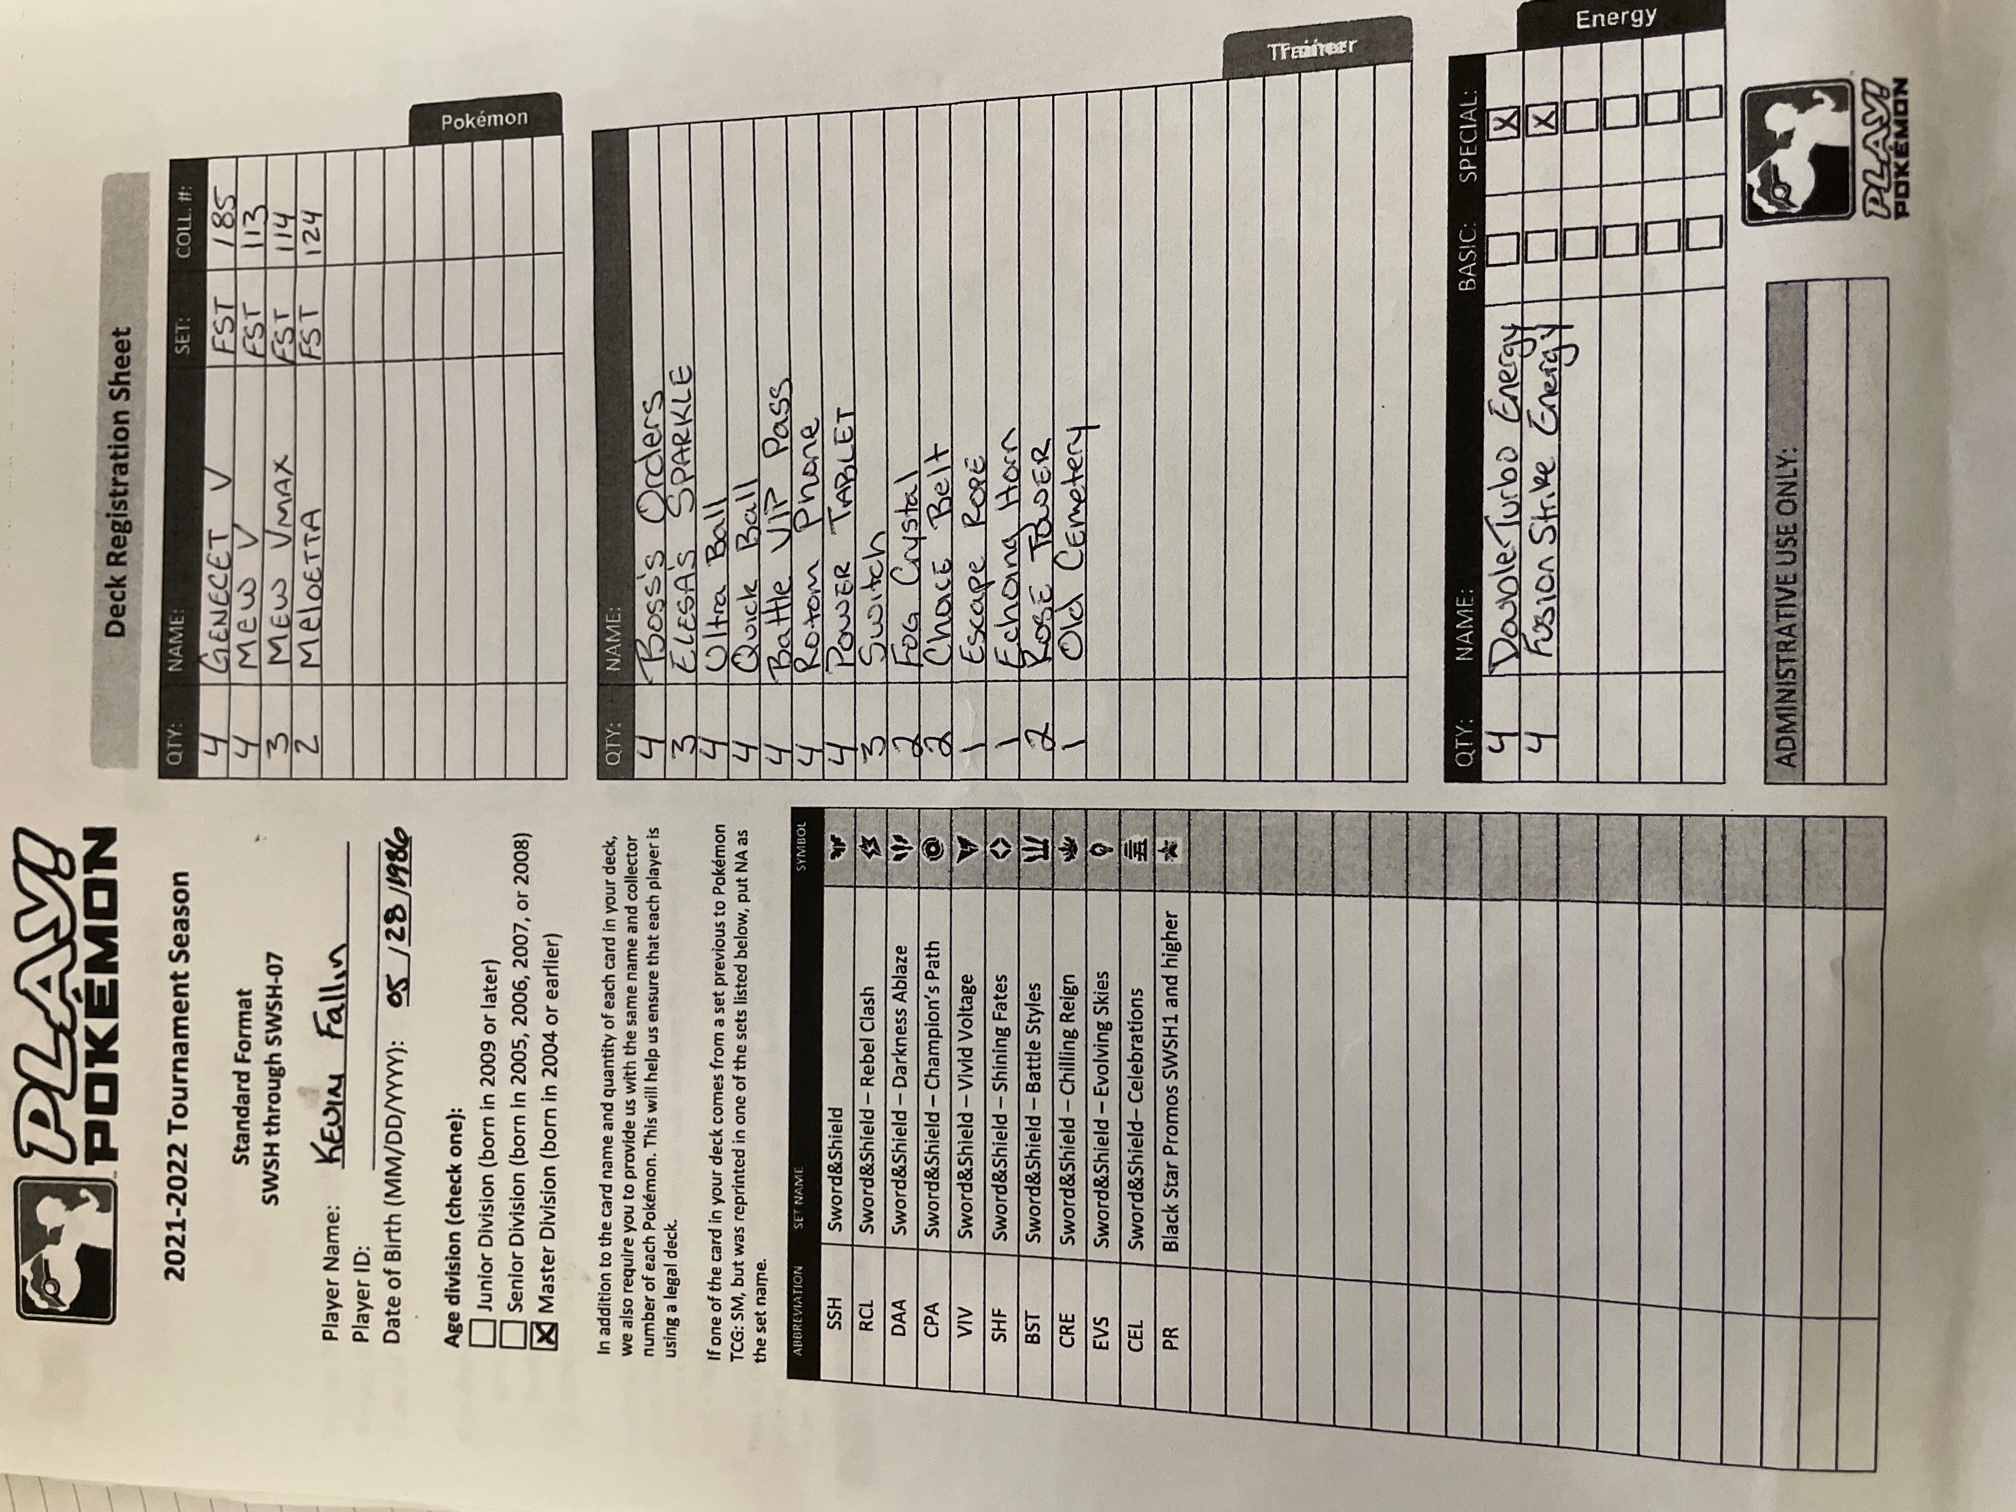 PLAY!
POKÉMON
2021-2022 Tournament Season
Standard Format
SWSH through SWSH-07
Player Name: KEVIN Fallin
Player ID:
Date of Birth (MM/DD/YYYY): 05 / 28 / 1986
Age division (check one):
Junior Division (born in 2009 or later)
Senior Division (born in 2005, 2006, 2007, or 2008)
X Master Division (born in 2004 or earlier)
In addition to the card name and quantity of each card in your deck,
we also require you to provide us with the same name and collector
number of each Pokémon. This will help us ensure that each player is
using a legal deck.
If one of the card in your deck comes from a set previous to Pokémon
TCG: SM, but was reprinted in one of the sets listed below, put NA as
the set name.
ABBREVIATION SET NAME SYMBOL
SSH Sword&Shield
RCL Sword&Shield – Rebel Clash
DAA Sword&Shield – Darkness Ablaze
CPA Sword&Shield – Champion's Path
VIV Sword&Shield – Vivid Voltage
SHF Sword&Shield – Shining Fates
BST Sword&Shield – Battle Styles
CRE Sword&Shield – Chilling Reign
EVS Sword&Shield – Evolving Skies
CEL Sword&Shield– Celebrations
PR Black Star Promos SWSH1 and higher
Deck Registration Sheet
QTY: NAME: SET: COLL. #:
4 GENECET V FST 185
4 MEW V FST 113
3 MEW VMAX FST 114
2 MElOETTA FST 124
Pokémon
QTY: NAME:
4 Boss's Orders
3 ELESA'S SPARKLE
4 Ultra Ball
4 Quick Ball
4 Battle VIP Pass
4 Rotom Phone
4 POWER TABLET
3 Switch
2 FOG Crystal
2 ChoicE Belt
1 Escape ROPE
1 Echoing Horn
2 ROSE TOWER
1 Old CEmetery
Trainer
QTY: NAME: BASIC: SPECIAL:
4 Double Turbo Energy X
4 Fusion Strike Energy X
Energy
ADMINISTRATIVE USE ONLY:
PLAY!
POKÉMON